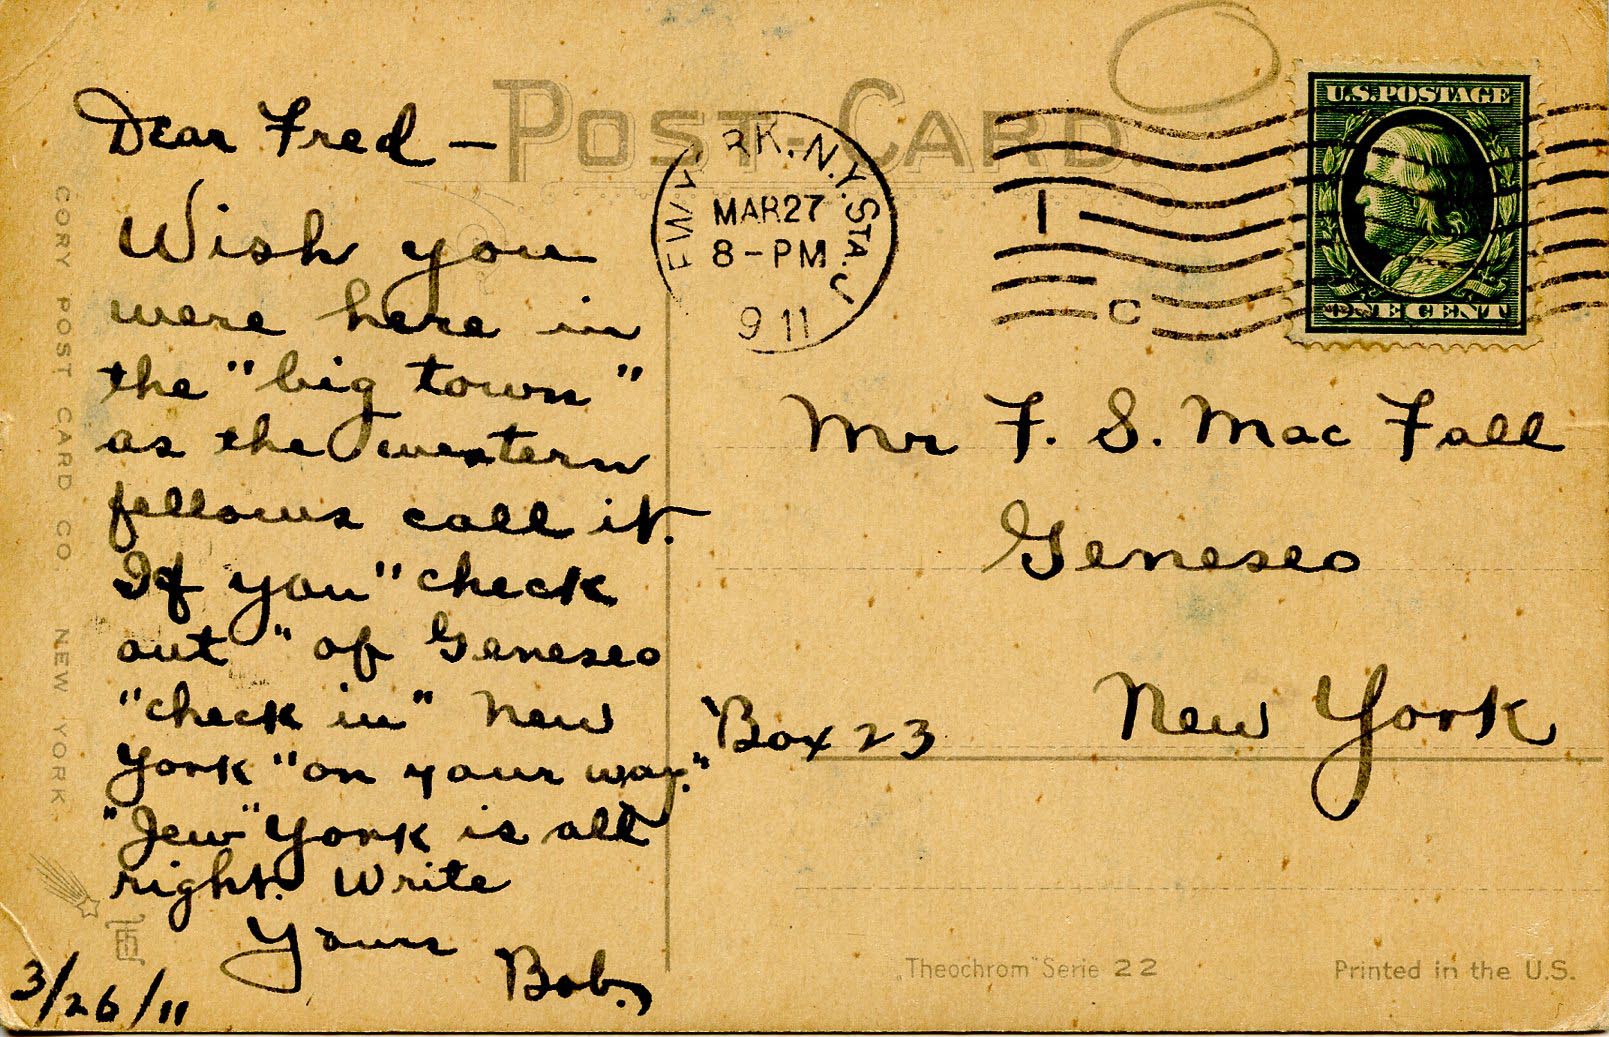 POST-CARD
Dear Fred —
Wish you
were here in
the "big town"
as the western
fellows call it.
If you "check
out" of Geneseo
"check in" New
York "on your way."
"Jew" York is all
right. Write
Yours
Bob.
3/26/11
CORY POST CARD CO. NEW YORK.
EW Y RK, N.Y. STA. J
MAR 27
8-PM
9 11
1
C
U.S. POSTAGE
ONE CENT
Mr F. S. Mac Fall
Geneseo
New York
Box 23
„Theochrom" Serie 22
Printed in the U.S.